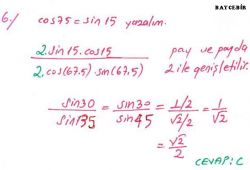 BAYCEBİR
6./ cos75 = sin 15 yazalım.
2.sin15.cos15 / 2.cos(67.5).sin(67.5) pay ve payda 2 ile genişletilir.
sin30/sin135 = sin30/sin45 = (1/2)/(√2/2) = 1/√2
= √2/2
CEVAP: C